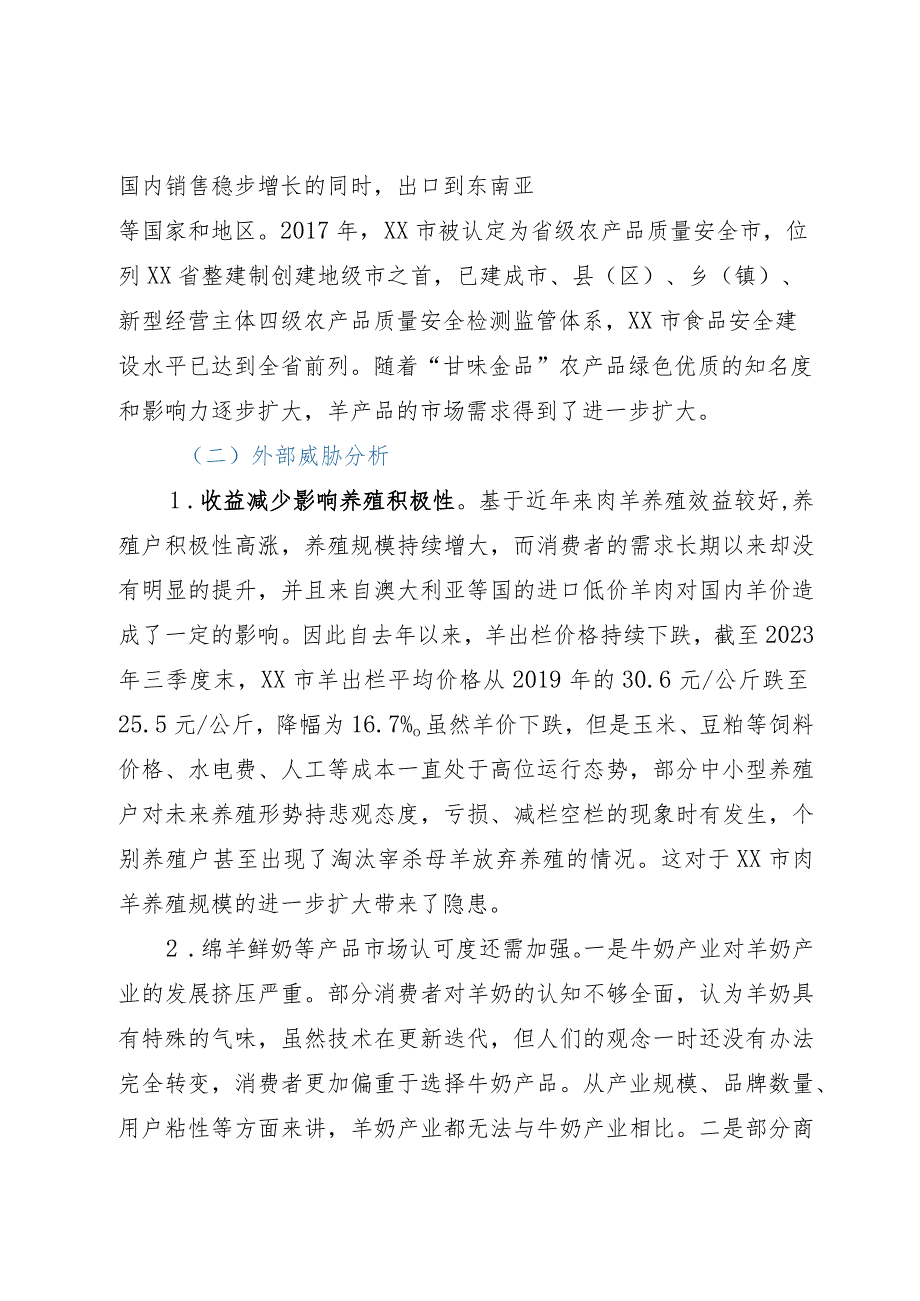 国内销售稳步增长的同时，出口到东南亚
等国家和地区。2017 年，XX 市被认定为省级农产品质量安全市，位
列 XX 省整建制创建地级市之首，已建成市、县（区）、乡（镇）、
新型经营主体四级农产品质量安全检测监管体系，XX 市食品安全建
设水平已达到全省前列。随着“甘味金品”农产品绿色优质的知名度
和影响力逐步扩大，羊产品的市场需求得到了进一步扩大。
（二）外部威胁分析
1.收益减少影响养殖积极性。基于近年来肉羊养殖效益较好,养
殖户积极性高涨，养殖规模持续增大，而消费者的需求长期以来却没
有明显的提升，并且来自澳大利亚等国的进口低价羊肉对国内羊价造
成了一定的影响。因此自去年以来，羊出栏价格持续下跌，截至 2023
年三季度末，XX 市羊出栏平均价格从 2019 年的 30.6 元/公斤跌至
25.5 元/公斤，降幅为 16.7%。虽然羊价下跌，但是玉米、豆粕等饲料
价格、水电费、人工等成本一直处于高位运行态势，部分中小型养殖
户对未来养殖形势持悲观态度，亏损、减栏空栏的现象时有发生，个
别养殖户甚至出现了淘汰宰杀母羊放弃养殖的情况。这对于 XX 市肉
羊养殖规模的进一步扩大带来了隐患。
2.绵羊鲜奶等产品市场认可度还需加强。一是牛奶产业对羊奶产
业的发展挤压严重。部分消费者对羊奶的认知不够全面，认为羊奶具
有特殊的气味，虽然技术在更新迭代，但人们的观念一时还没有办法
完全转变，消费者更加偏重于选择牛奶产品。从产业规模、品牌数量、
用户粘性等方面来讲，羊奶产业都无法与牛奶产业相比。二是部分商